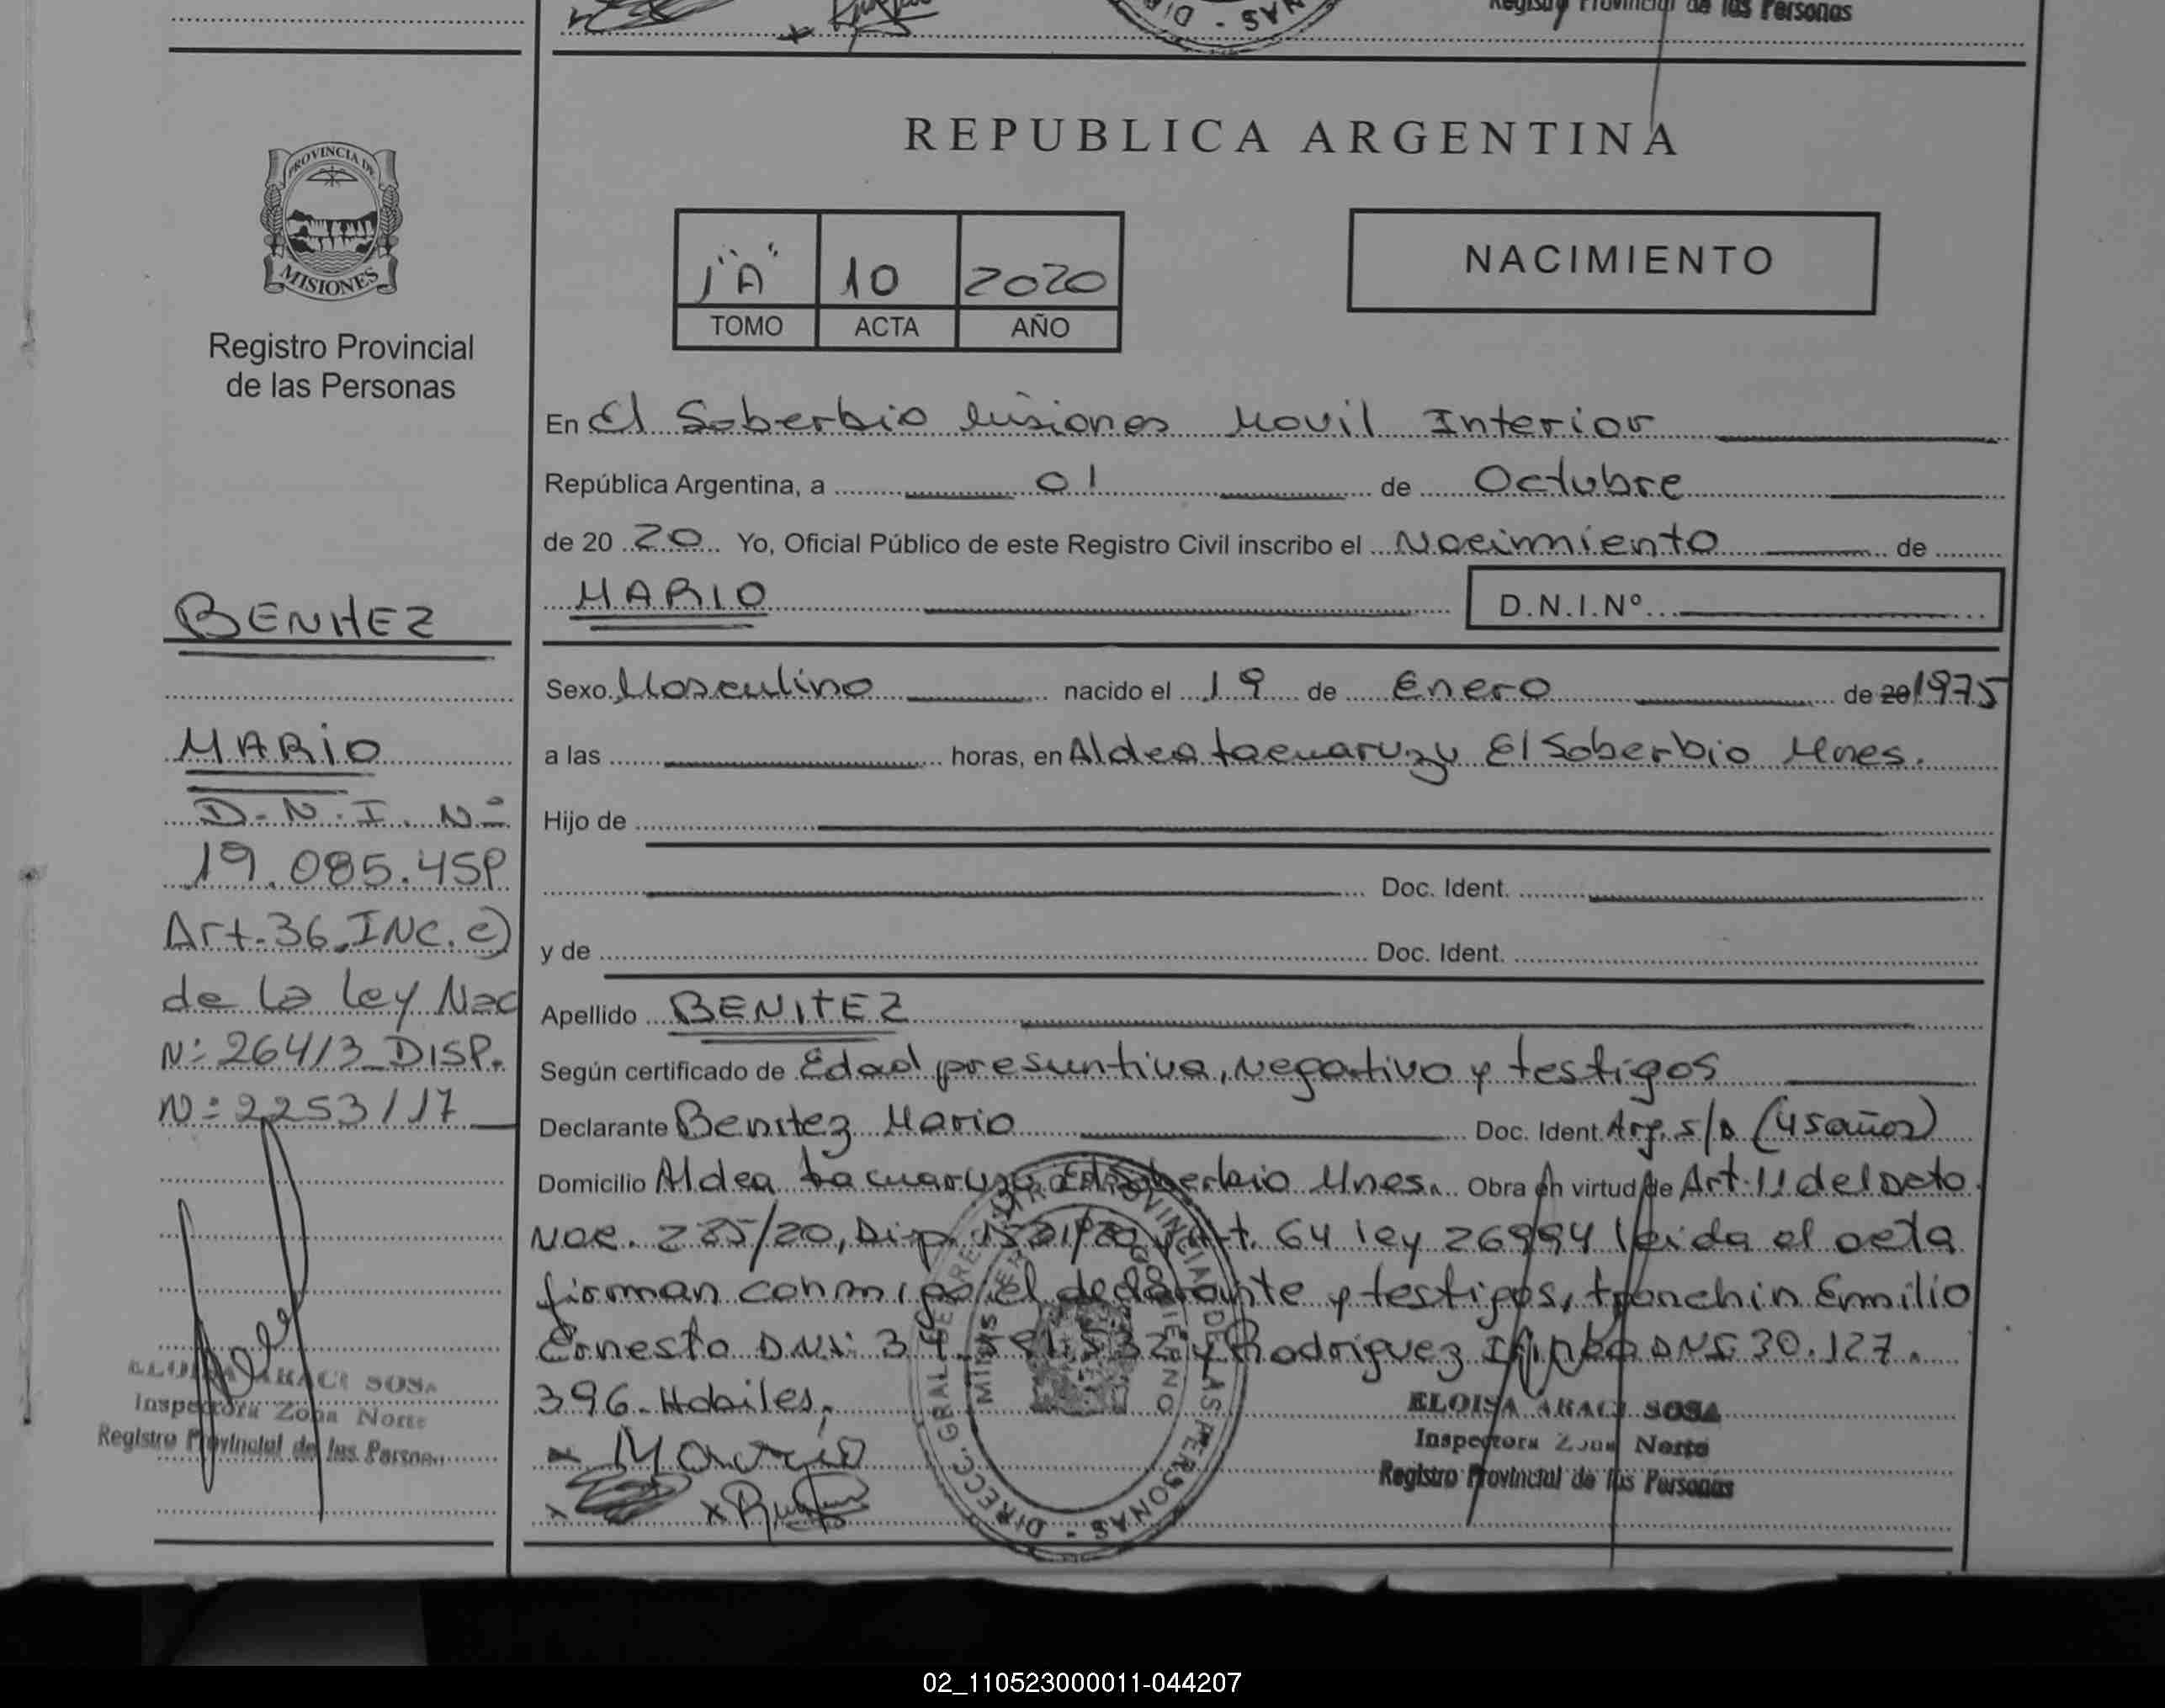 Registro Provincial de las Personas
REPUBLICA ARGENTINA
PROVINCIA DE
MISIONES
Registro Provincial
de las Personas
1 "A" 10 2020
TOMO ACTA AÑO
NACIMIENTO
En El Soberbio Misiones Movil Interior
República Argentina, a 01 de Octubre
de 20 20 Yo, Oficial Público de este Registro Civil inscribo el Nacimiento de
MARIO D.N.I.Nº
Sexo Masculino nacido el 19 de Enero de 20 1975
a las horas, en Aldea tacuaruzu El Soberbio Mnes.
Hijo de
Doc. Ident.
y de Doc. Ident.
Apellido BENITEZ
Según certificado de Edad presuntiva, Negativo y testigos
Declarante Benitez Mario Doc. Ident. Arg. s/D (45 años)
Domicilio Aldea tacuaruzu El Soberbio Mnes. Obra en virtud de Art. 11 del Dcto
285/20, Disp. Art. 64 ley 26994 leida el acta
firman conmigo el declarante y testigos, tronchin Emilio
Ernesto DNI: y Rodriguez DNI 30.127.
396. Habiles,
x Mario
x x
ELOISA ARACI SOSA
Inspectora Zona Norte
Registro Provincial de las Personas
DIRECC. GRAL. DE REGISTRO PROVINCIAL DE LAS PERSONAS -
BENITEZ
MARIO
D.N.I. Nº
19.085.458
Art. 36, INC. c)
de la Ley Nac
Nº 26413 DISP.
Nº 2253/17
ELOISA ARACI SOSA
Inspectora Zona Norte
Registro Provincial de las Personas
02_110523000011-044207